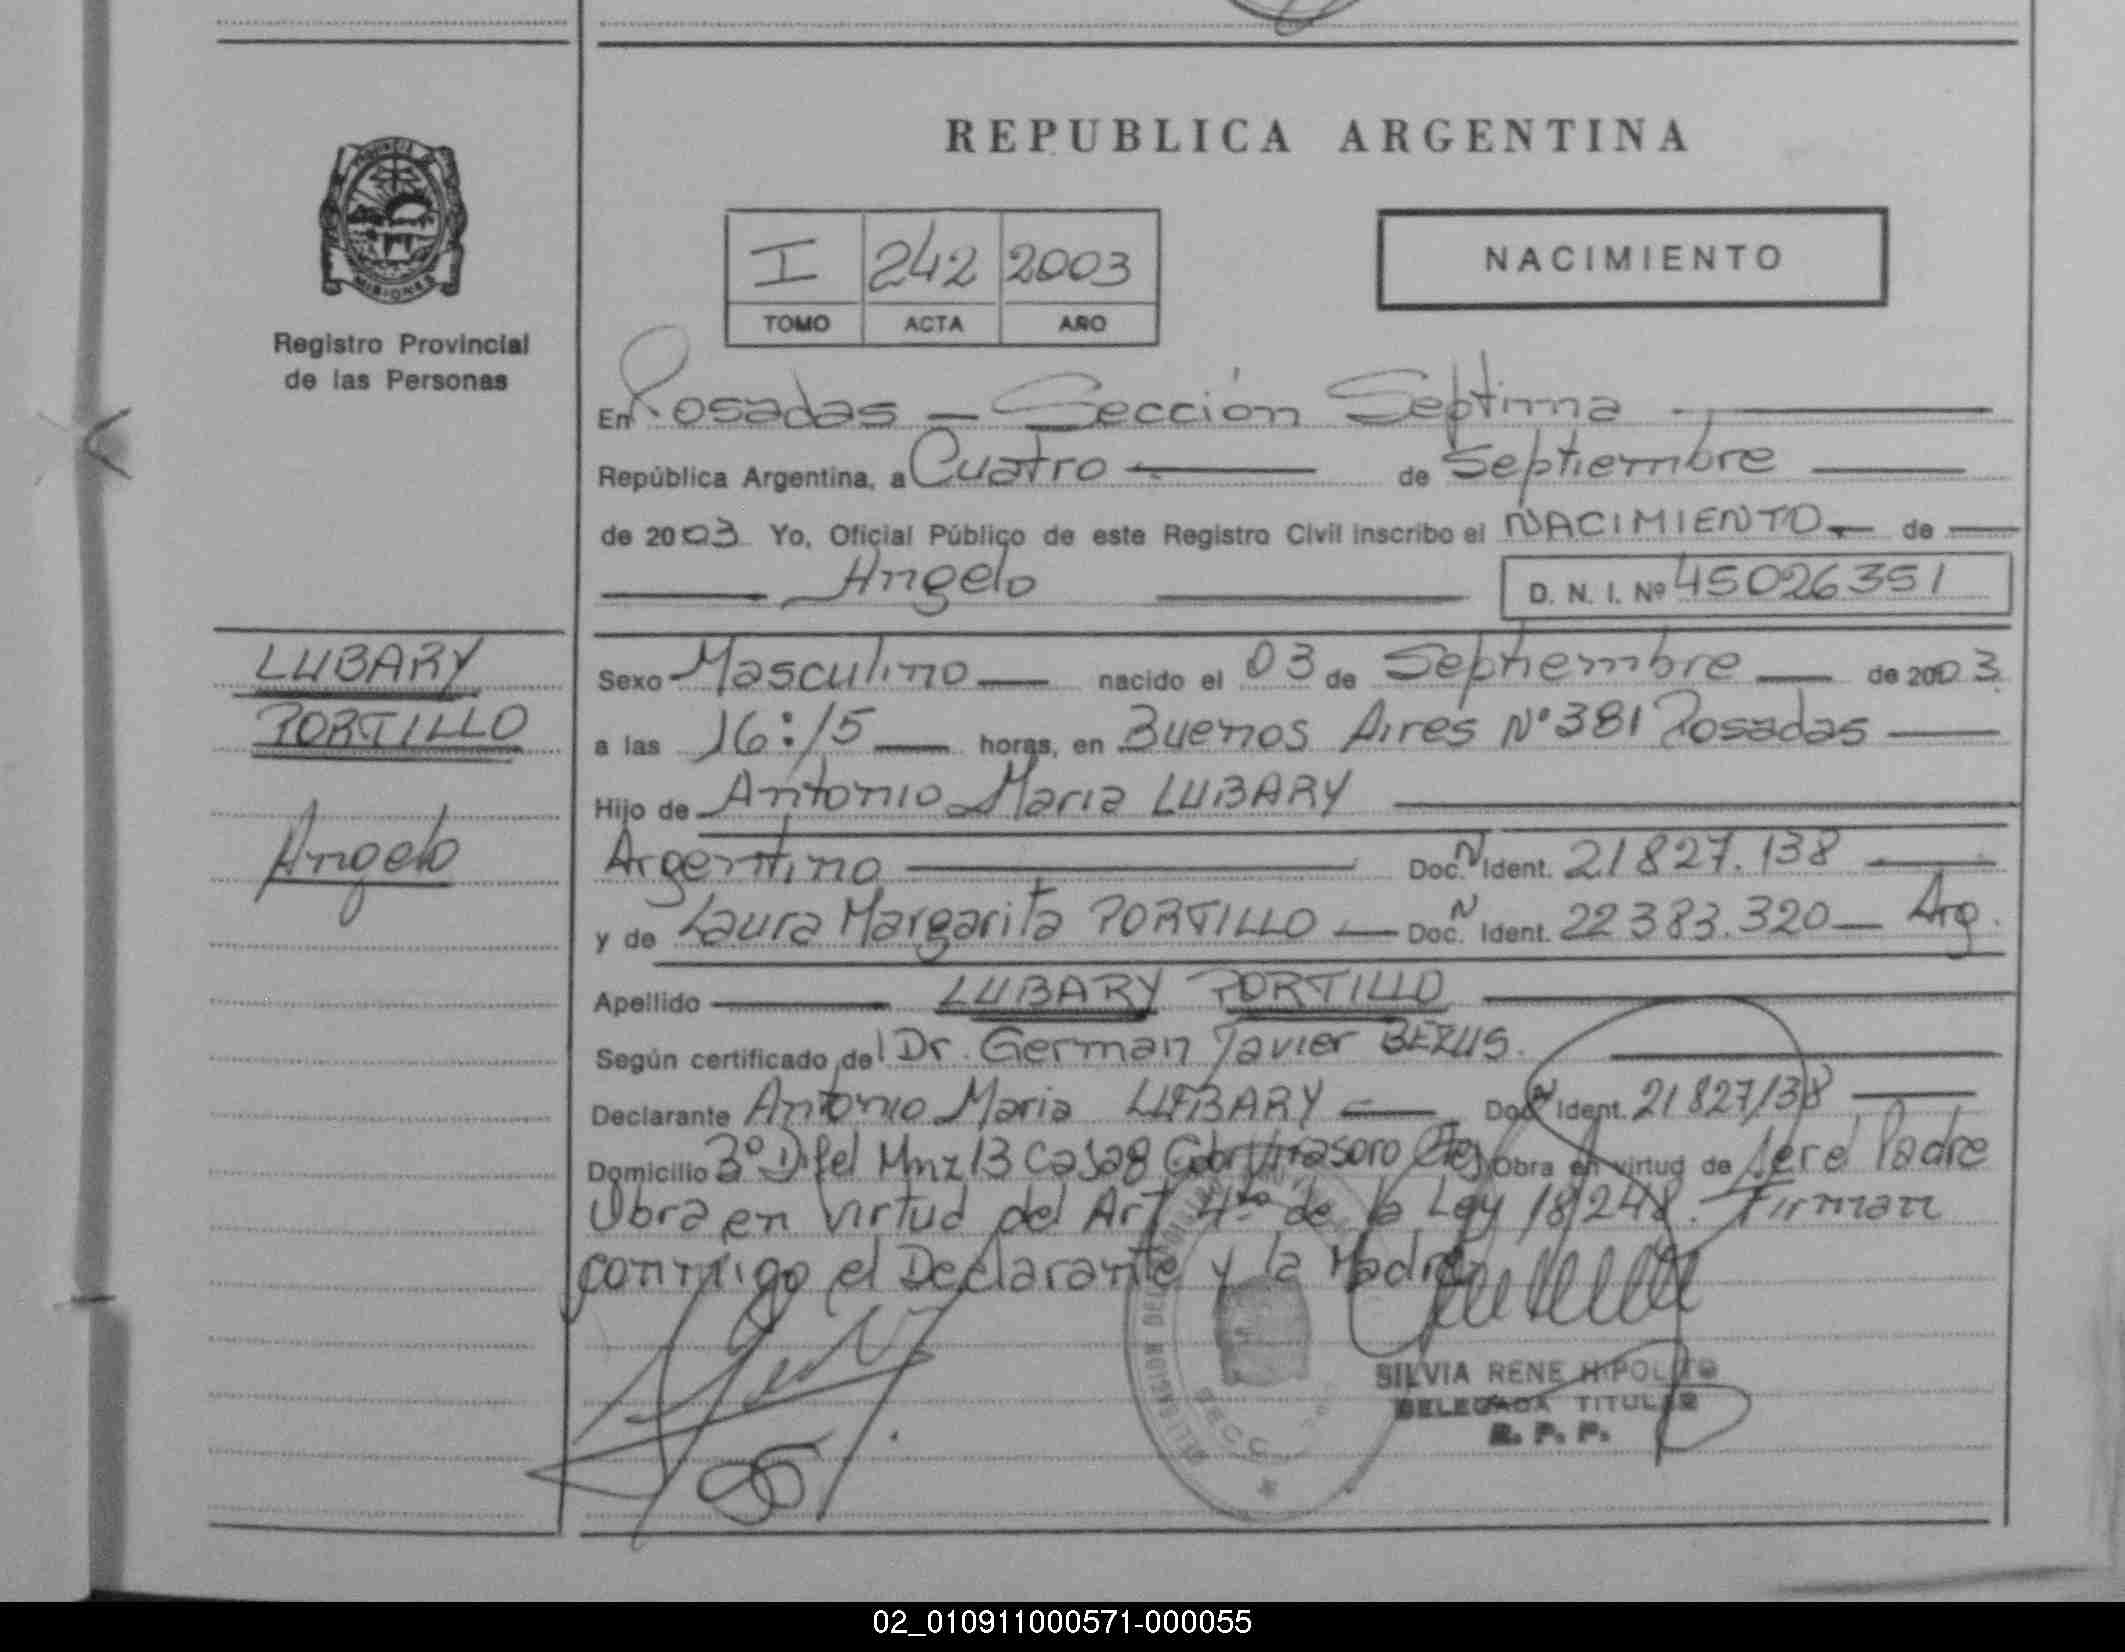 REPUBLICA ARGENTINA
PROVINCIA DE
MISIONES
Registro Provincial
de las Personas
I 242 2003
TOMO ACTA AÑO
NACIMIENTO
En Posadas — Sección Septima
República Argentina, a Cuatro — de Septiembre —
de 2003 Yo, Oficial Público de este Registro Civil inscribo el NACIMIENTO — de —
— Angelo — D. N. I. Nº 45026351
LUBARY
PORTILLO
Angelo
Sexo Masculino — nacido el 03 de Septiembre — de 2003
a las 16:15 — horas, en Buenos Aires Nº 381 Posadas —
Hijo de Antonio Maria LUBARY —
Argentino — Doc. N Ident. 21827.138 —
y de Laura Margarita PORTILLO — Doc. N Ident. 22383.320 — Arg.
Apellido — LUBARY PORTILLO —
Según certificado del Dr. German Javier BEZUS. —
Declarante Antonio Maria LUBARY — Doc. N Ident. 21827138 —
Domicilio 3º Mnz 13 Casa 8 Obra en virtud de Ser el Padre
Obra en virtud del Art 4to de la Ley 18.248. Firman
conmigo el Declarante y la Madre
SILVIA RENE HIPOLITO
DELEGADA TITULAR
R. P. P.
SECC
02_010911000571-000055